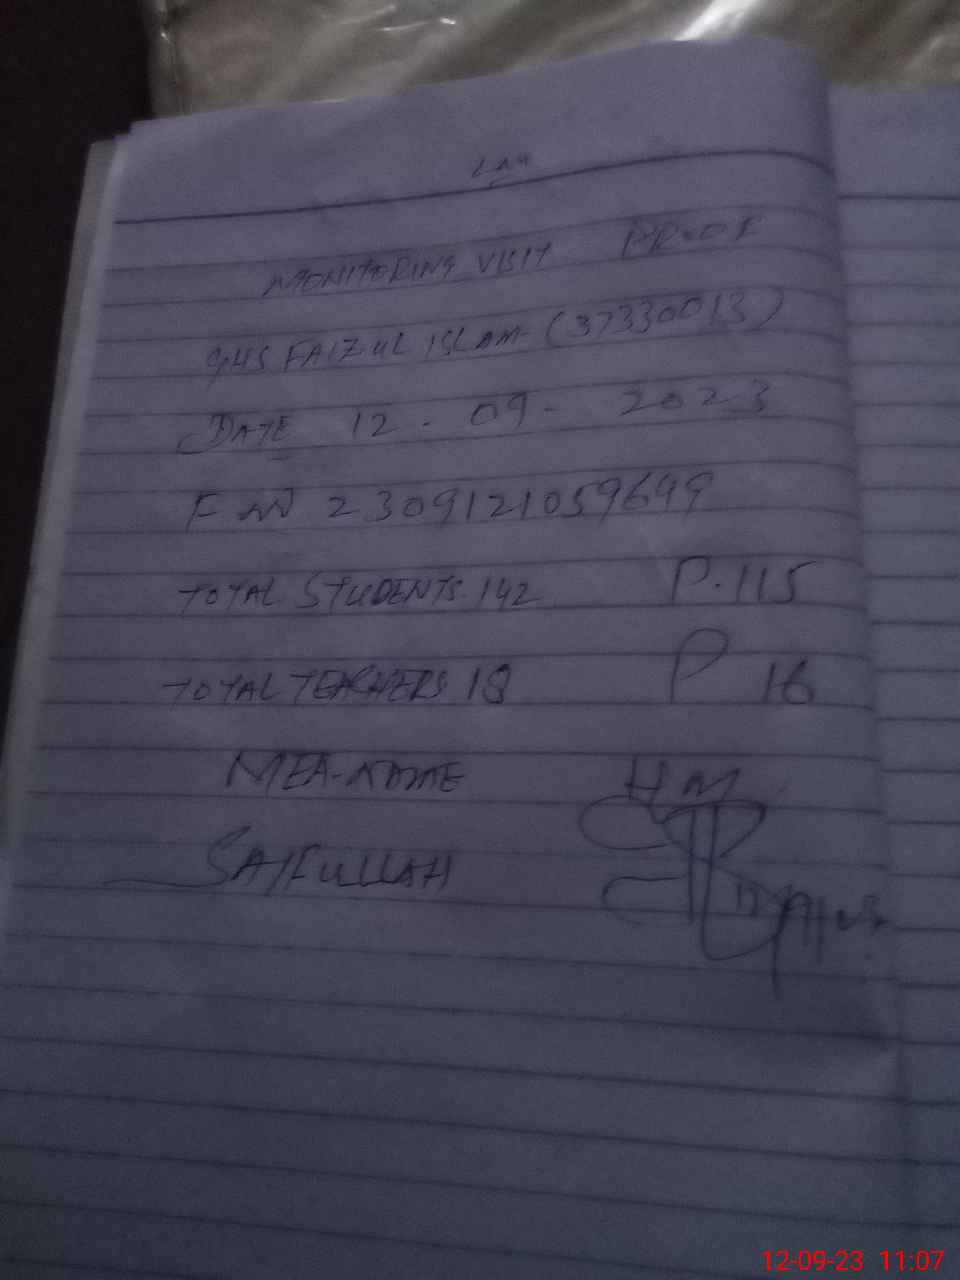 MONITORING VISIT PROOF
GHS FAIZUL ISLAM (37330013)
DATE 12-09-2023
F N 2309121059649
TOTAL STUDENTS 142 P.115
TOTAL TEACHERS 18 P 16
MEA-NAME HM
SAIFULLAH
12-09-23 11:07